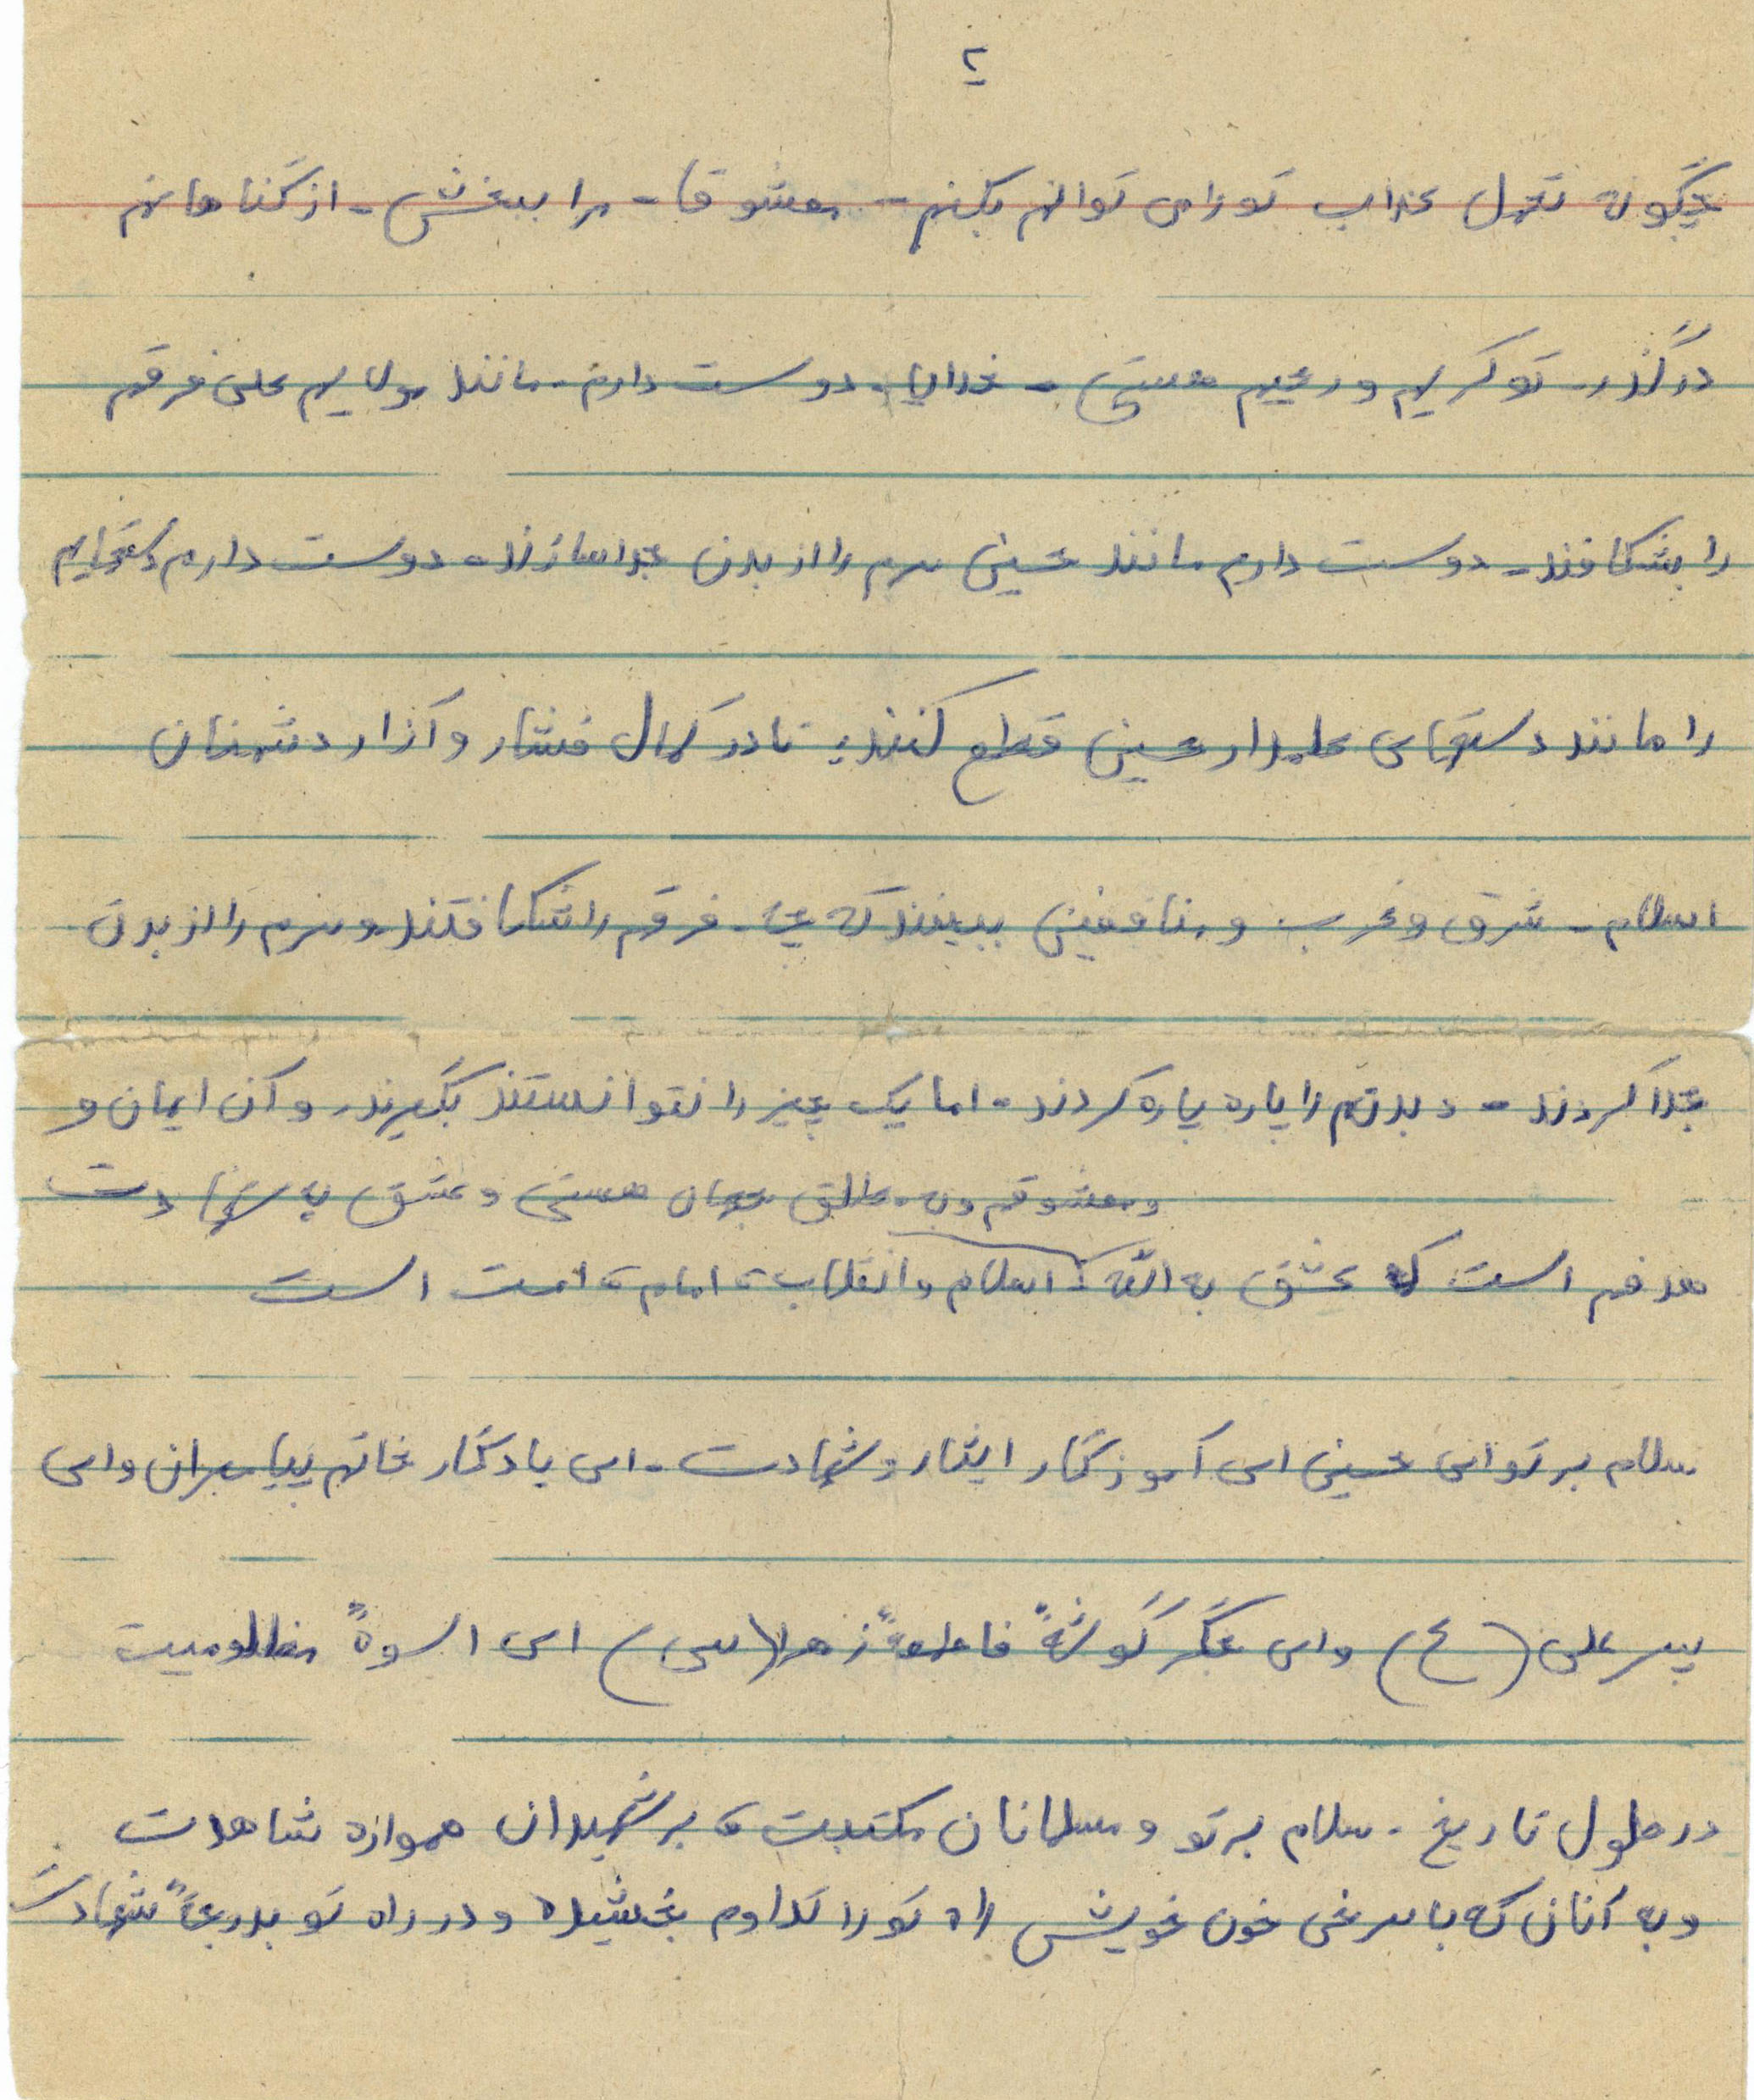 ۲
چگونه تحمل عذاب تو را می توانم بکنم - معشوقا - مرا ببخش - از گناهانم
درگذر - تو کریم و رحیم هستی - خدایا - دوست دارم - مانند مولایم علی فرقم
را بشکافند - دوست دارم مانند حسین سرم را از بدن جدا سازند - دوست دارم دستهایم
را مانند دستهای علمدار حسین قطع کنند، تا در کمال فشار و آزار دشمنان
اسلام - شرق و غرب و منافقین ببینند که - فرقم را شکافتند و سرم را از بدن
جدا کردند - و بدنم را پاره پاره کردند - اما یک چیز را نتوانستند بگیرند و آن ایمان و
و معشوقم و به خالق جهان هستی و عشق به شهادت
هدفم است که عشق به الله اسلام و انقلاب، امام، امت است
سلام بر تو ای حسین ای آموزگار ایثار و شهادت - ای یادگار خاتم پیامبران و ای
پسر علی (ع) و ای جگر گوشهٔ فاطمهٔ زهرا (س) ای اسوهٔ مظلومیت
در طول تاریخ - سلام بر تو و مسلمانان مکتبت، بر شهیدان همواره شاهدت
و به آنان که با سرخی خون خویش راه تو را تداوم بخشیده و در راه تو بدرجهٔ شهادت